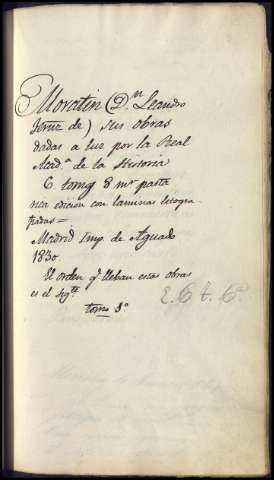 Moratin (D.n Leandro
Fernz de) sus obras
dadas a luz por la Real
Acad.a de la Historia
6 tomos 8 mr pasta
rica edicion con laminas litogra-
fiadas=
Madrid Imp. de Aguado
1830.
El orden q.e lleban estas obras
es el sig.te
E. 6 t. 6.a
tomo 1.o